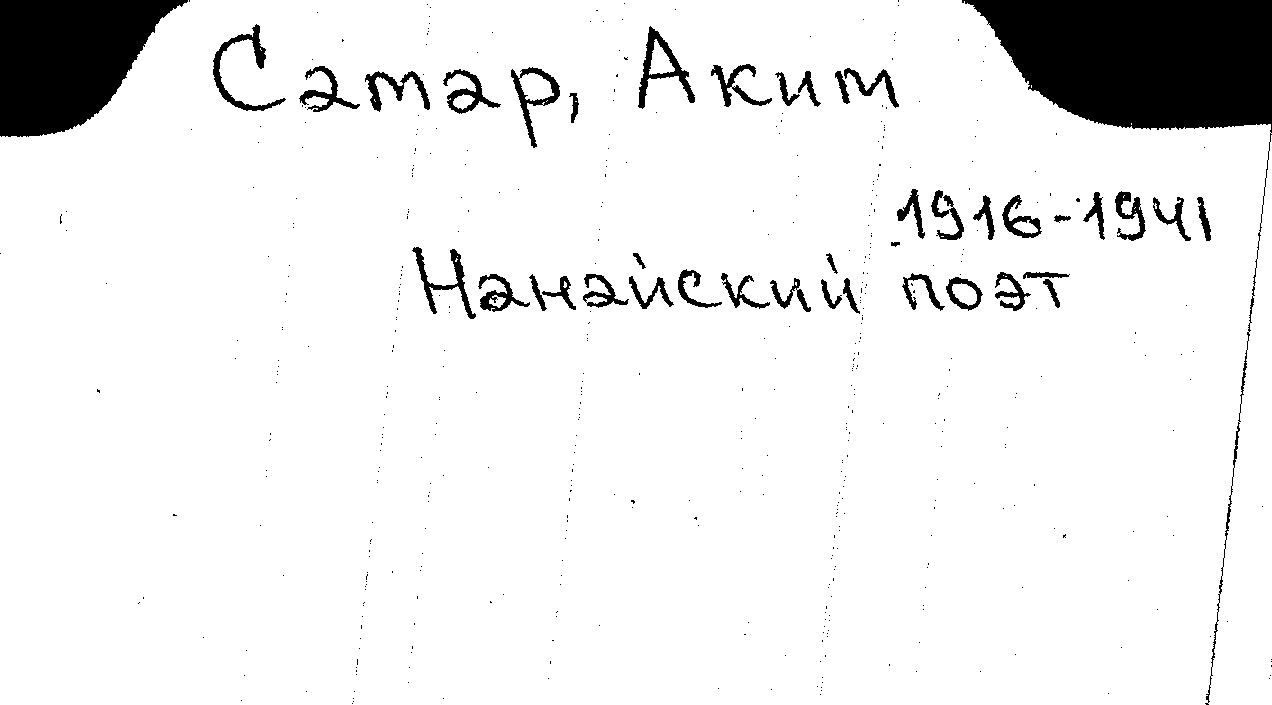 Самар, Аким
1916-1941
Нанайский поэт